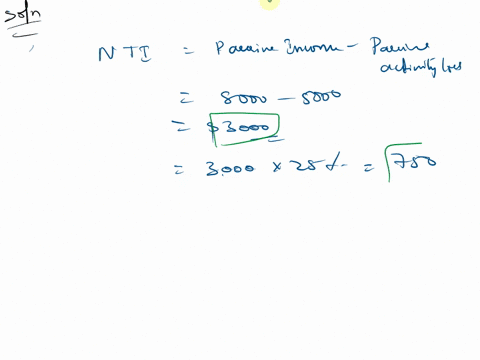 Soln
NTI = Passive Income - Passive activity loss
= 8000 - 5000
= $3000
= 3000 × 25% = 750